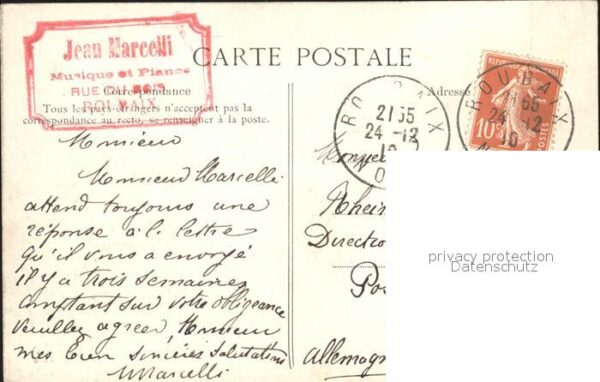 Jean Marcelli
Musique et Pianos
RUE DU
ROUBAIX
CARTE POSTALE
Correspondance
Adresse
Tous les pays étrangers n'acceptent pas la
correspondance au recto, se renseigner à la poste.
REPUBLIQUE FRANÇAISE
10
POSTES
ROUBAIX
21 55
24 -12
10
NORD
ROUBAIX
21 55
24 -12
10
Monsieur
Monsieur Marcelli
attend toujours une
réponse à la lettre
qu'il vous a envoyé
il y a trois semaines
comptant sur votre obligeance
veuillez agréer, Monsieur
mes bien sincères salutations
Marcelli
Rhei
Directio
Allemagn
privacy protection
Datenschutz